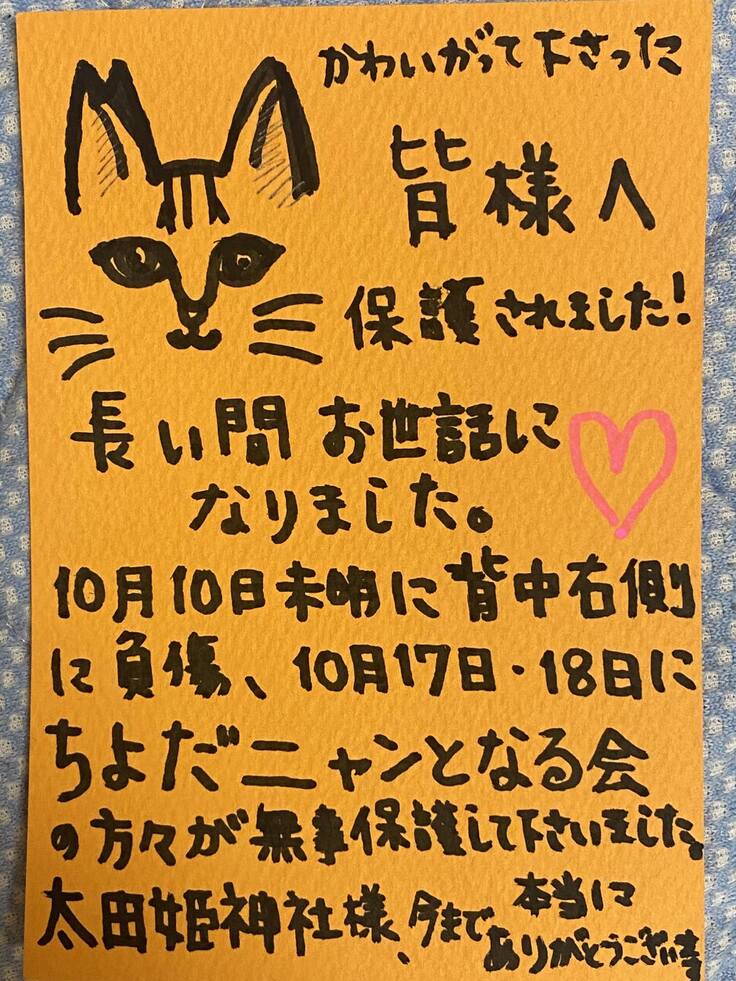 かわいがって下さった
皆様へ
保護されました!
長い間 お世話に
なりました。
10月10日未明に背中右側
に負傷、10月17日・18日に
ちよだニャンとなる会
の方々が無事保護して下さいました。
太田姫神社様、今まで本当に
ありがとうございます